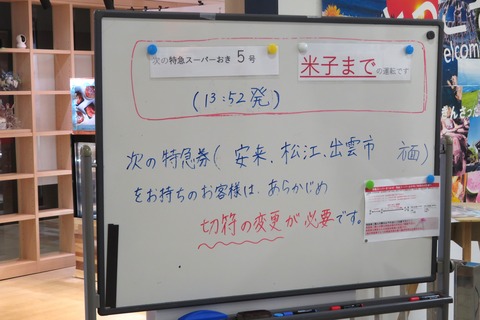 次の特急スーパーおき 5 号
米子までの運転です
(13:52発)
次の特急券( 安来、松江、出雲市 方面 )
をお持ちのお客様は、あらかじめ
切符の変更が必要です。
elcom